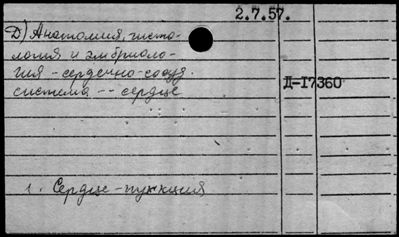 2.7.57.
D) Анатомия, гисто-
логия и эмбриоло-
гия - сердечно-сосуд.
система -- сердце
Д-17360
1. Сердце - пункция